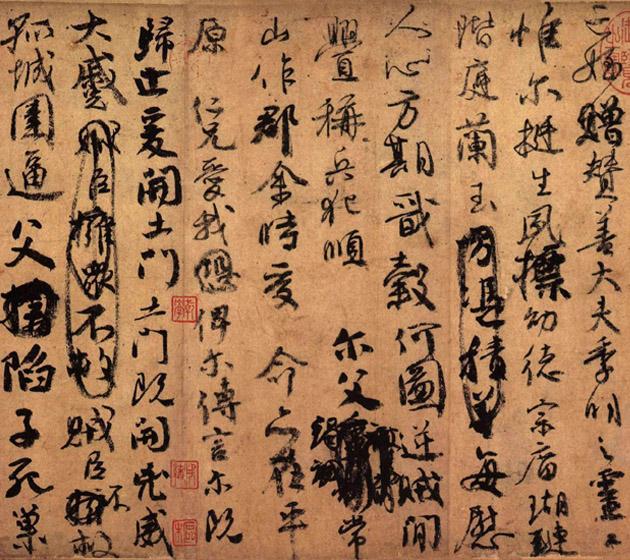 亡姪贈贊善大夫季明之靈曰
惟尔挺生夙標幼德宗廟瑚璉
階庭蘭玉方憑積善每慰
人心方期戩穀何圖逆賊間
釁稱兵犯順尔父常
山作郡余時受命亦在平
原仁兄愛我恐俾尔傳言尔既
歸止爰開土門土門既開兇威
大蹙賊臣擁衆不救賊臣不救
孤城圍逼父陷子死巢